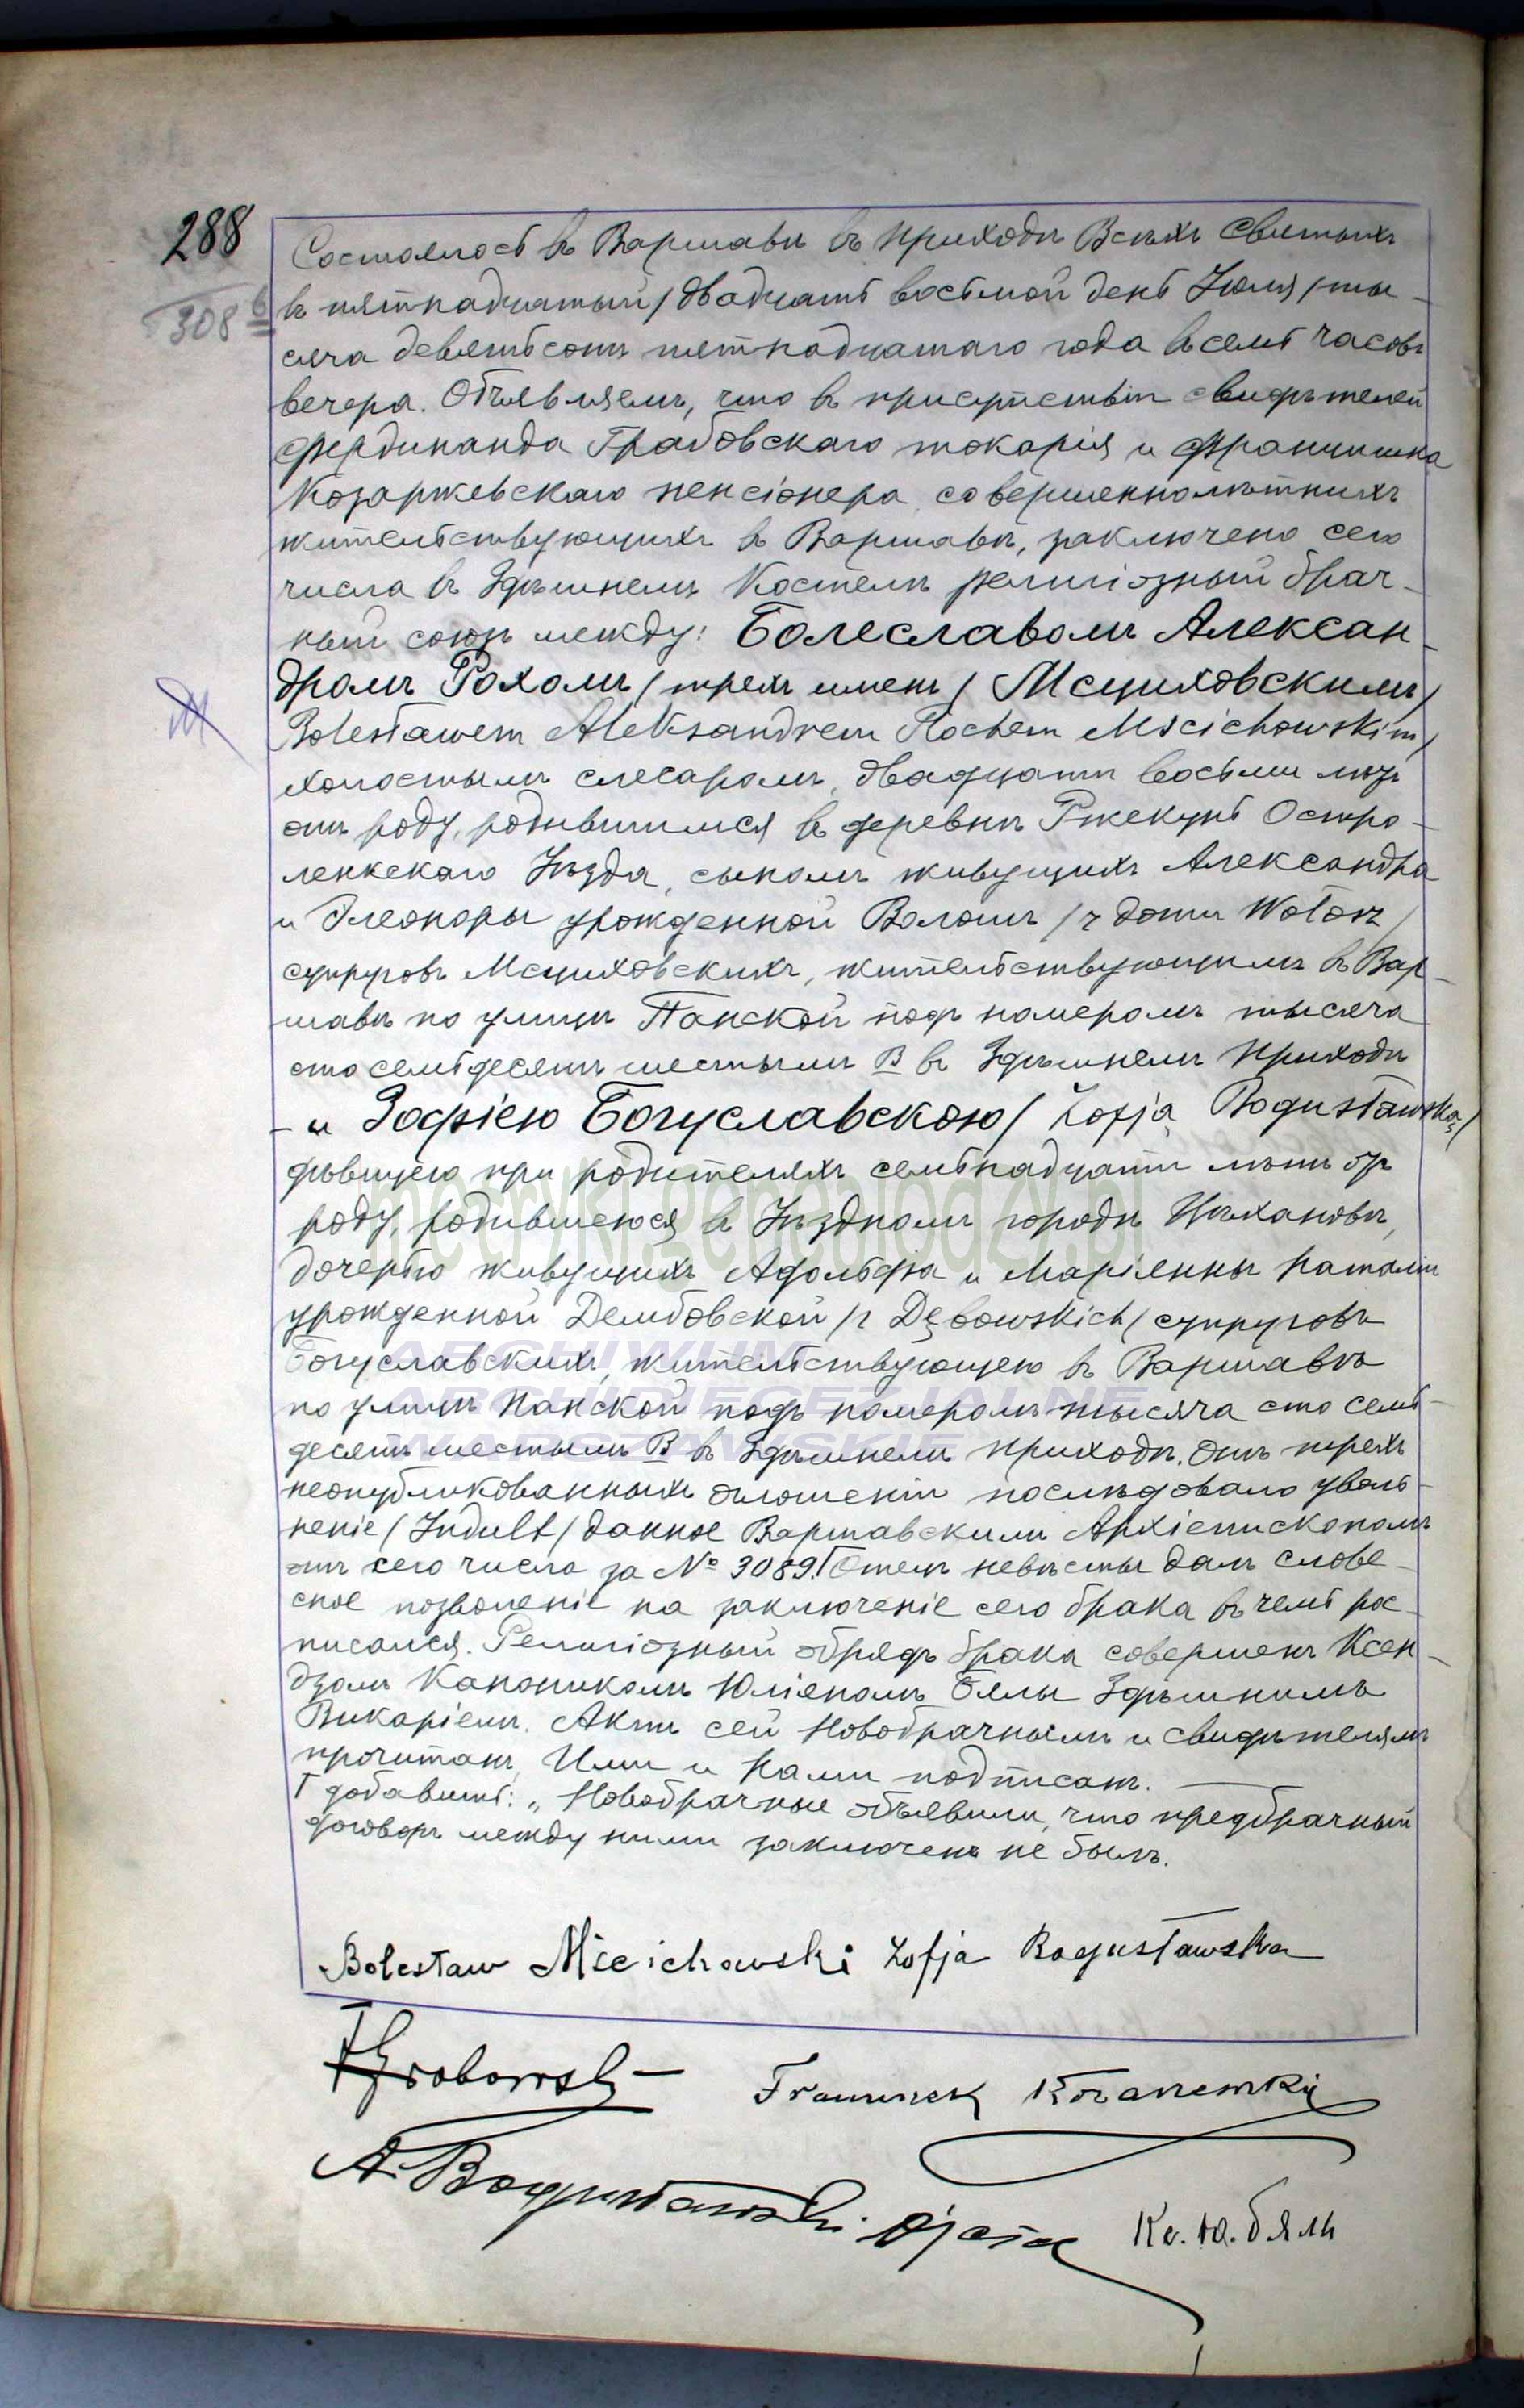 288
308 b
Состоялось въ Варшавѣ въ приходѣ Всѣхъ Святыхъ
въ пятнадцатый / двадцать восьмой день Іюля / ты-
сяча девятьсотъ пятнадцатаго года въ семь часовъ
вечера. Объявляемъ, что въ присутствіи свидѣтелей
Фердинанда Грабовскаго токарія и Францишка
Козаржевскаго пенсіонера, совершеннолѣтнихъ
жительствующихъ въ Варшавѣ, заключено сего
числа въ здѣшнемъ Костелѣ религіозный брач-
ный союзъ между: Болеславомъ Алексан-
дромъ Рохомъ / трехъ именъ / Мсциховскимъ /
Bolesławem Aleksandrem Rochem Mścichowskim /
холостымъ слесаромъ, двадцати восьми лѣтъ
отъ роду, родившимся въ деревнѣ Ржекунь Остро-
ленкскаго Уѣзда, сыномъ живущихъ Александра
и Элеоноры урожденной Волошъ / z domu Wołosz /
супруговъ Мсциховскихъ, жительствующимъ въ Вар-
шавѣ по улицѣ Панской подъ номеромъ тысяча
сто семьдесятъ шестымъ В въ здѣшнемъ приходѣ
- и Зофіею Богуславскою / Zofją Bogusławską /
дѣвицею при родителяхъ семнадцати лѣтъ отъ
роду, родившеюся въ Уѣздномъ городѣ Цѣхановѣ,
дочерью живущихъ Адольфа и Маріанны Наталіи
урожденной Дембовской / z Dębowskich / супруговъ
Богуславскихъ, жительствующею въ Варшавѣ
по улицѣ Панской подъ номеромъ тысяча сто семь-
десятъ шестымъ В въ здѣшнемъ приходѣ. Отъ трехъ
неопубликованныхъ оглошеній послѣдовало уволь-
неніе / Indult / данное Варшавскимъ Архіепископомъ
отъ сего числа за № 3089. Г Отецъ невѣсты далъ слове-
сное позволеніе на заключеніе сего брака въ чемъ рос-
писался. Религіозный обрядъ брака совершенъ Ксен-
дзомъ Каноникомъ Юліаномъ Бялы здѣшнимъ
Викаріемъ. Актъ сей Новобрачнымъ и свидѣтелямъ
прочитанъ, Ими и Нами подписанъ.
Г добавить: „ Новобрачные объявили, что предбрачный
договоръ между ними заключенъ не былъ.
Bolesław Mścichowski Zofja Bogusławska
FGrabowski
Franciszek Kozarzewski
A. Bogusławski. Ojciec
Кс. Ю. Бялы
metryki.genealodzy.pl
ARCHIWUM
ARCHIDIECEZJALNE
WARSZAWSKIE